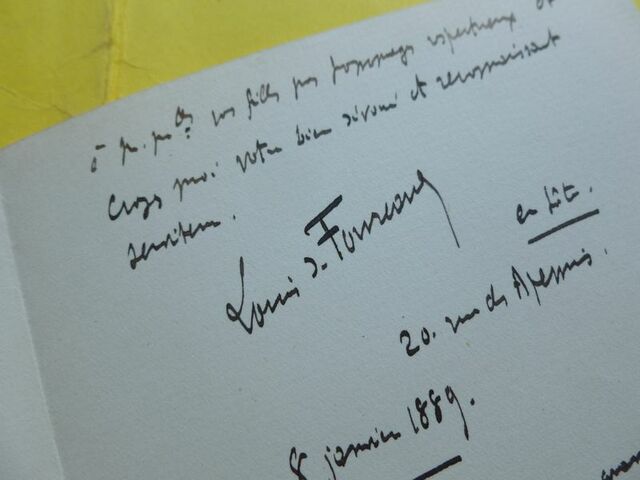 à vos filles mes hommages respectueux et
Croyez moi votre bien dévoué et reconnaissant
serviteur.
Louis de Fourcaud
en hâte.
20. rue des Apennins.
8 janvier 1889.